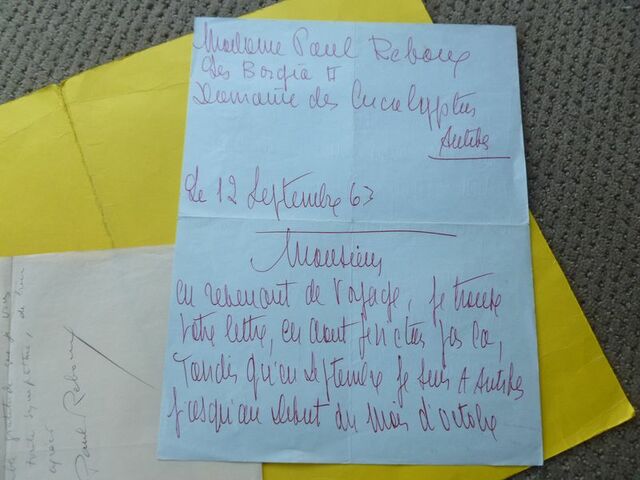 Madame Paul Reboux
Les Borgia II
Domaine des Eucalyptus
Antibes
Le 12 Septembre 63
Monsieur
en revenant de voyage, je trouve
votre lettre, en Aout je n'étais pas là,
Tandis qu'en Septembre je suis A Antibes
jusqu'au debut du mois d'octobre
que je vous
toute sympathie, de
Paul Reboux